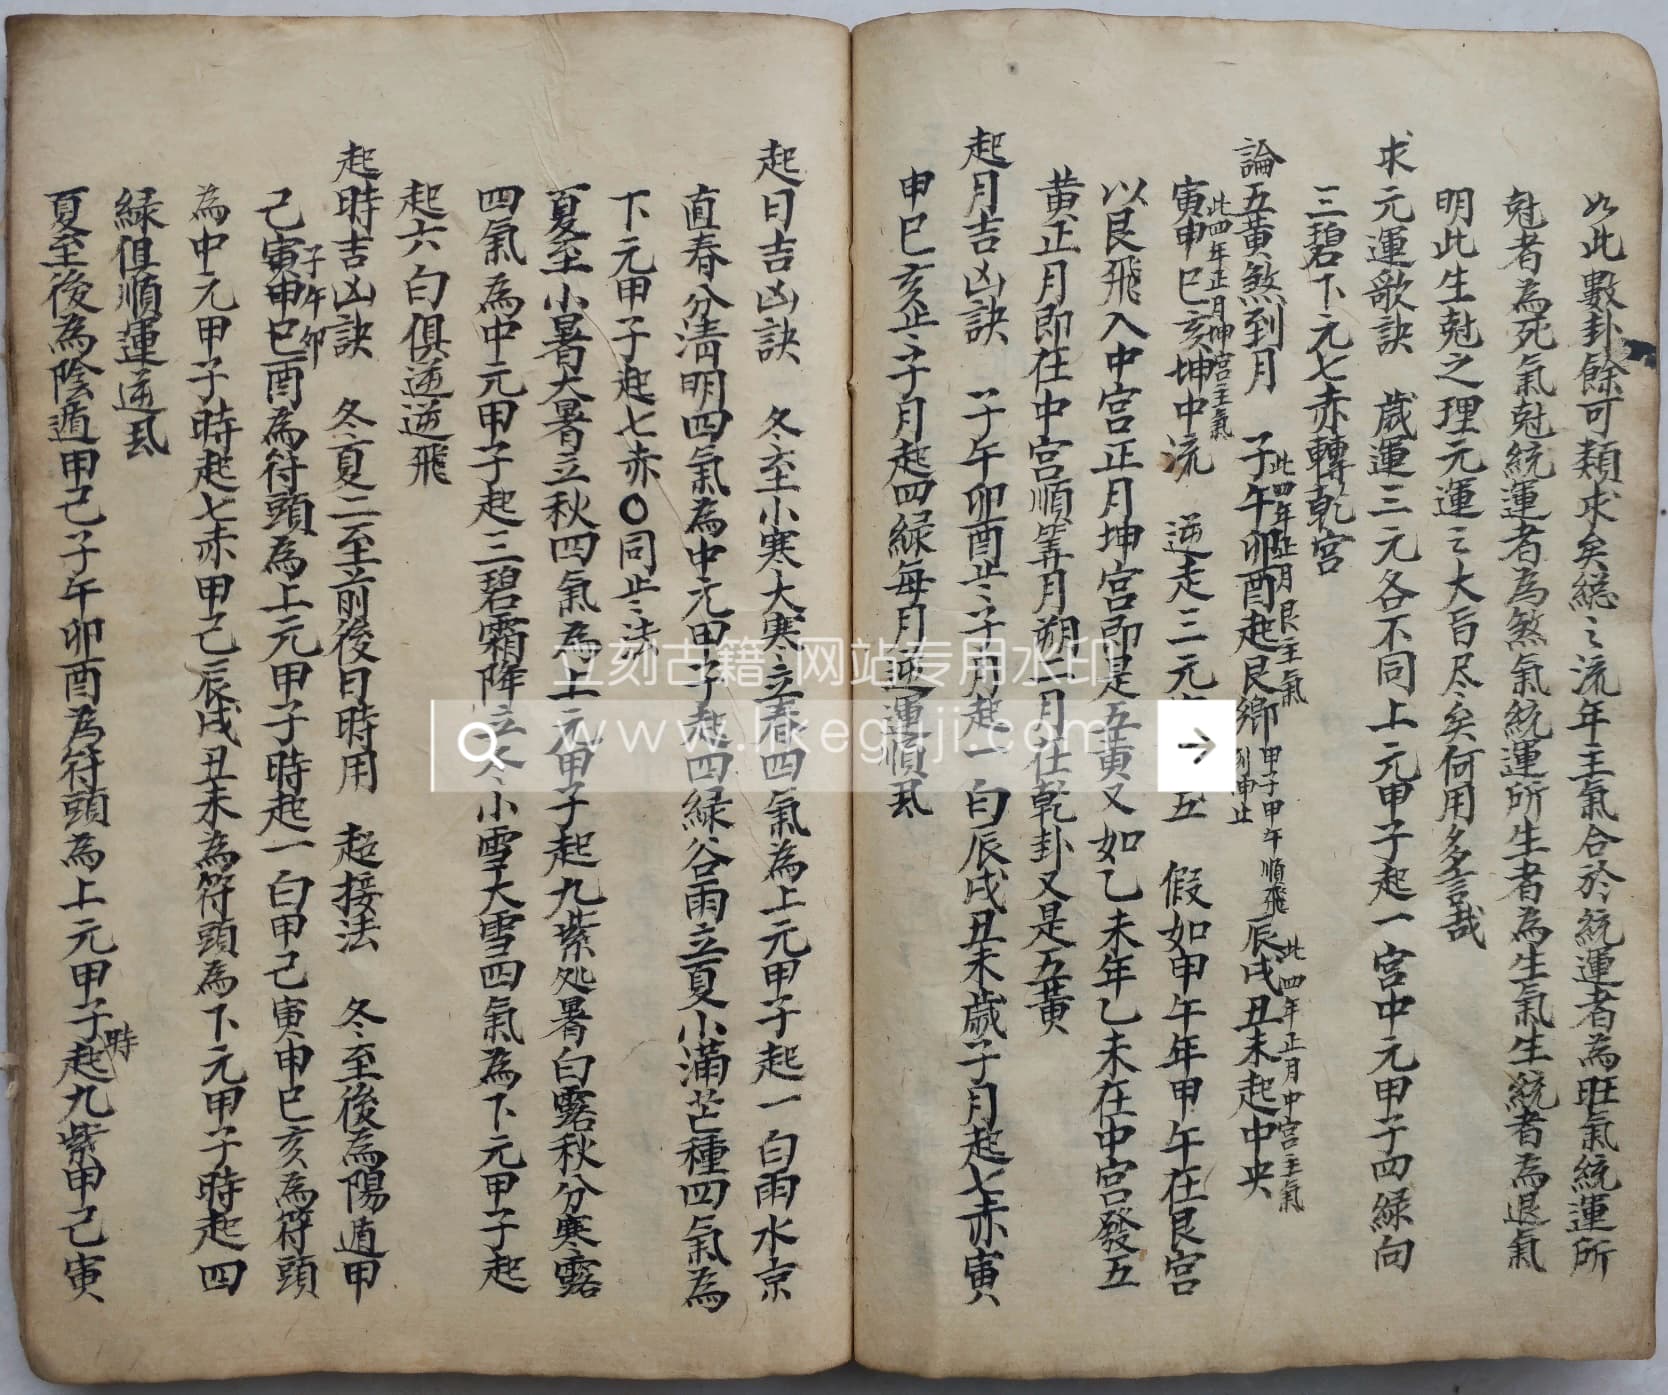 如此數卦餘可類求矣總之流年主氣合於統運者為旺氣統運所
尅者為死氣尅統運者為煞氣統運所生者為生氣生統者為退氣
明此生尅之理元運之大旨尽矣何用多言哉
求元運歌訣 歲運三元各不同上元甲子起一宮中元甲子四緑向
三碧下元七赤轉乾宮
論五黄煞到月 子午卯酉起艮鄉 辰戌丑未起中央
此四年正月艮主氣
甲子甲午順飛
此四年正月中宮主氣
寅申巳亥坤中流 逆走三元 五 假如甲午年甲午在艮宮
此四年正月坤宮主氣
以艮飛入中宮正月坤宮即是五黄又如乙未年乙未在中宮發五
黄正月即在中宮順筭月朔二月在乾卦又是五黄
起月吉凶訣 子午卯酉此之子月起一白辰戌丑未歲子月起七赤寅
申巳亥止之子月起四緑每月逆運順乱
起日吉凶訣 冬至小寒大寒立春四氣為上元甲子起一白雨水京
直春分清明四氣為中元甲子起四緑谷雨立夏小滿芒種四氣為
下元甲子起七赤〇同止之法
夏至小暑大暑立秋四氣為上元甲子起九紫処暑白露秋分寒露
四氣為中元甲子起三碧霜降立冬小雪大雪四氣為下元甲子起
起六白俱逆逆飛
起時吉凶訣 冬夏二至前後日時用 超接法 冬至後為陽遁甲
子午卯
己寅申巳酉為符頭為上元甲子時起一白甲己寅申巳亥為符頭
為中元甲子時起七赤甲己辰戌丑未為符頭為下元甲子時起四
緑俱順運逆乱
夏至後為陰遁甲己子午卯酉為符頭為上元甲子起九紫甲己寅
時
立刻古籍 网站专用水印
www.lkeguji.com